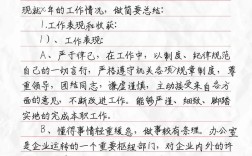 现就×年的工作情况，做简要总结：
1.工作表现和收获：
1)、工作表现：
A、严于律己，在工作中，以制度、纪律规范
自己的一切言行，严格遵守机关各项规章制度，尊
重领导，团结同志，谦虚谨慎，主动接受来自各方
面的意见，不断改进工作。能够严谨、细致、脚踏
实地的完成本职工作。
B、懂得事情轻重缓急，做事较有条理。办公室
是企业运转的一个重要枢纽部门，对企业内外的许